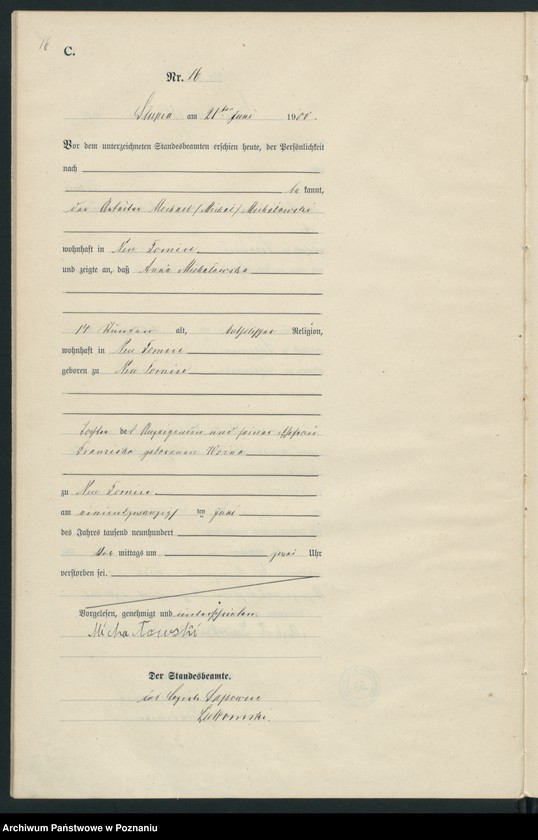 16
C.
Nr. 16
Slupia am 21ten Juni 1900.
Vor dem unterzeichneten Standesbeamten erschien heute, der Persönlichkeit
nach
be kannt,
der Arbeiter Michael (Michał) Michałowski
wohnhaft in Neu Tomisl
und zeigte an, daß Anna Michałowska
14 Stunden alt, katholischer Religion,
wohnhaft in Neu
geboren zu Neu
Tochter des Anzeigenden und seiner Ehefrau
Franziska geborenen Worna
zu Neu
am einundzwanzigsten Juni
des Jahres tausend neunhundert
Vor mittags um zwei Uhr
verstorben sei.
Vorgelesen, genehmigt und unterschrieben.
Michałowski
Der Standesbeamte.
Archiwum Państwowe w Poznaniu